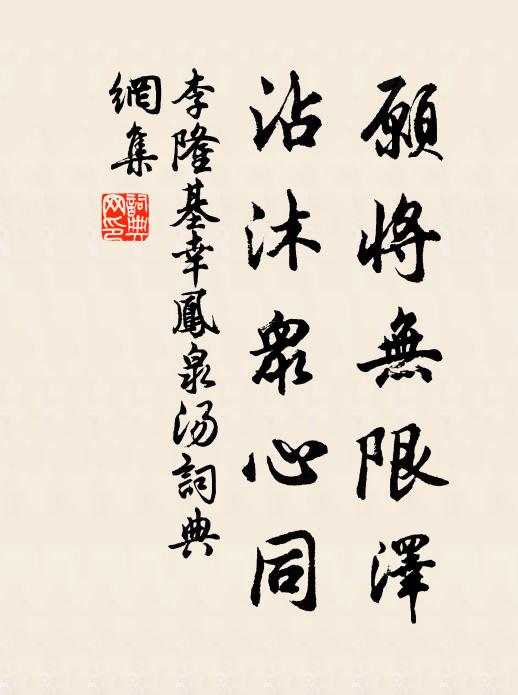 願將無限澤
沾沐衆心同
李隆基幸鳳泉汤詞典
網集
詞典
网印